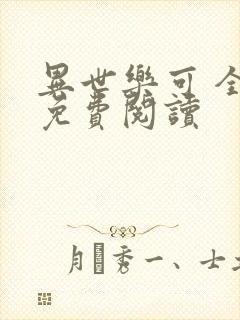 異世樂可全
免費閱讀
秀一、士